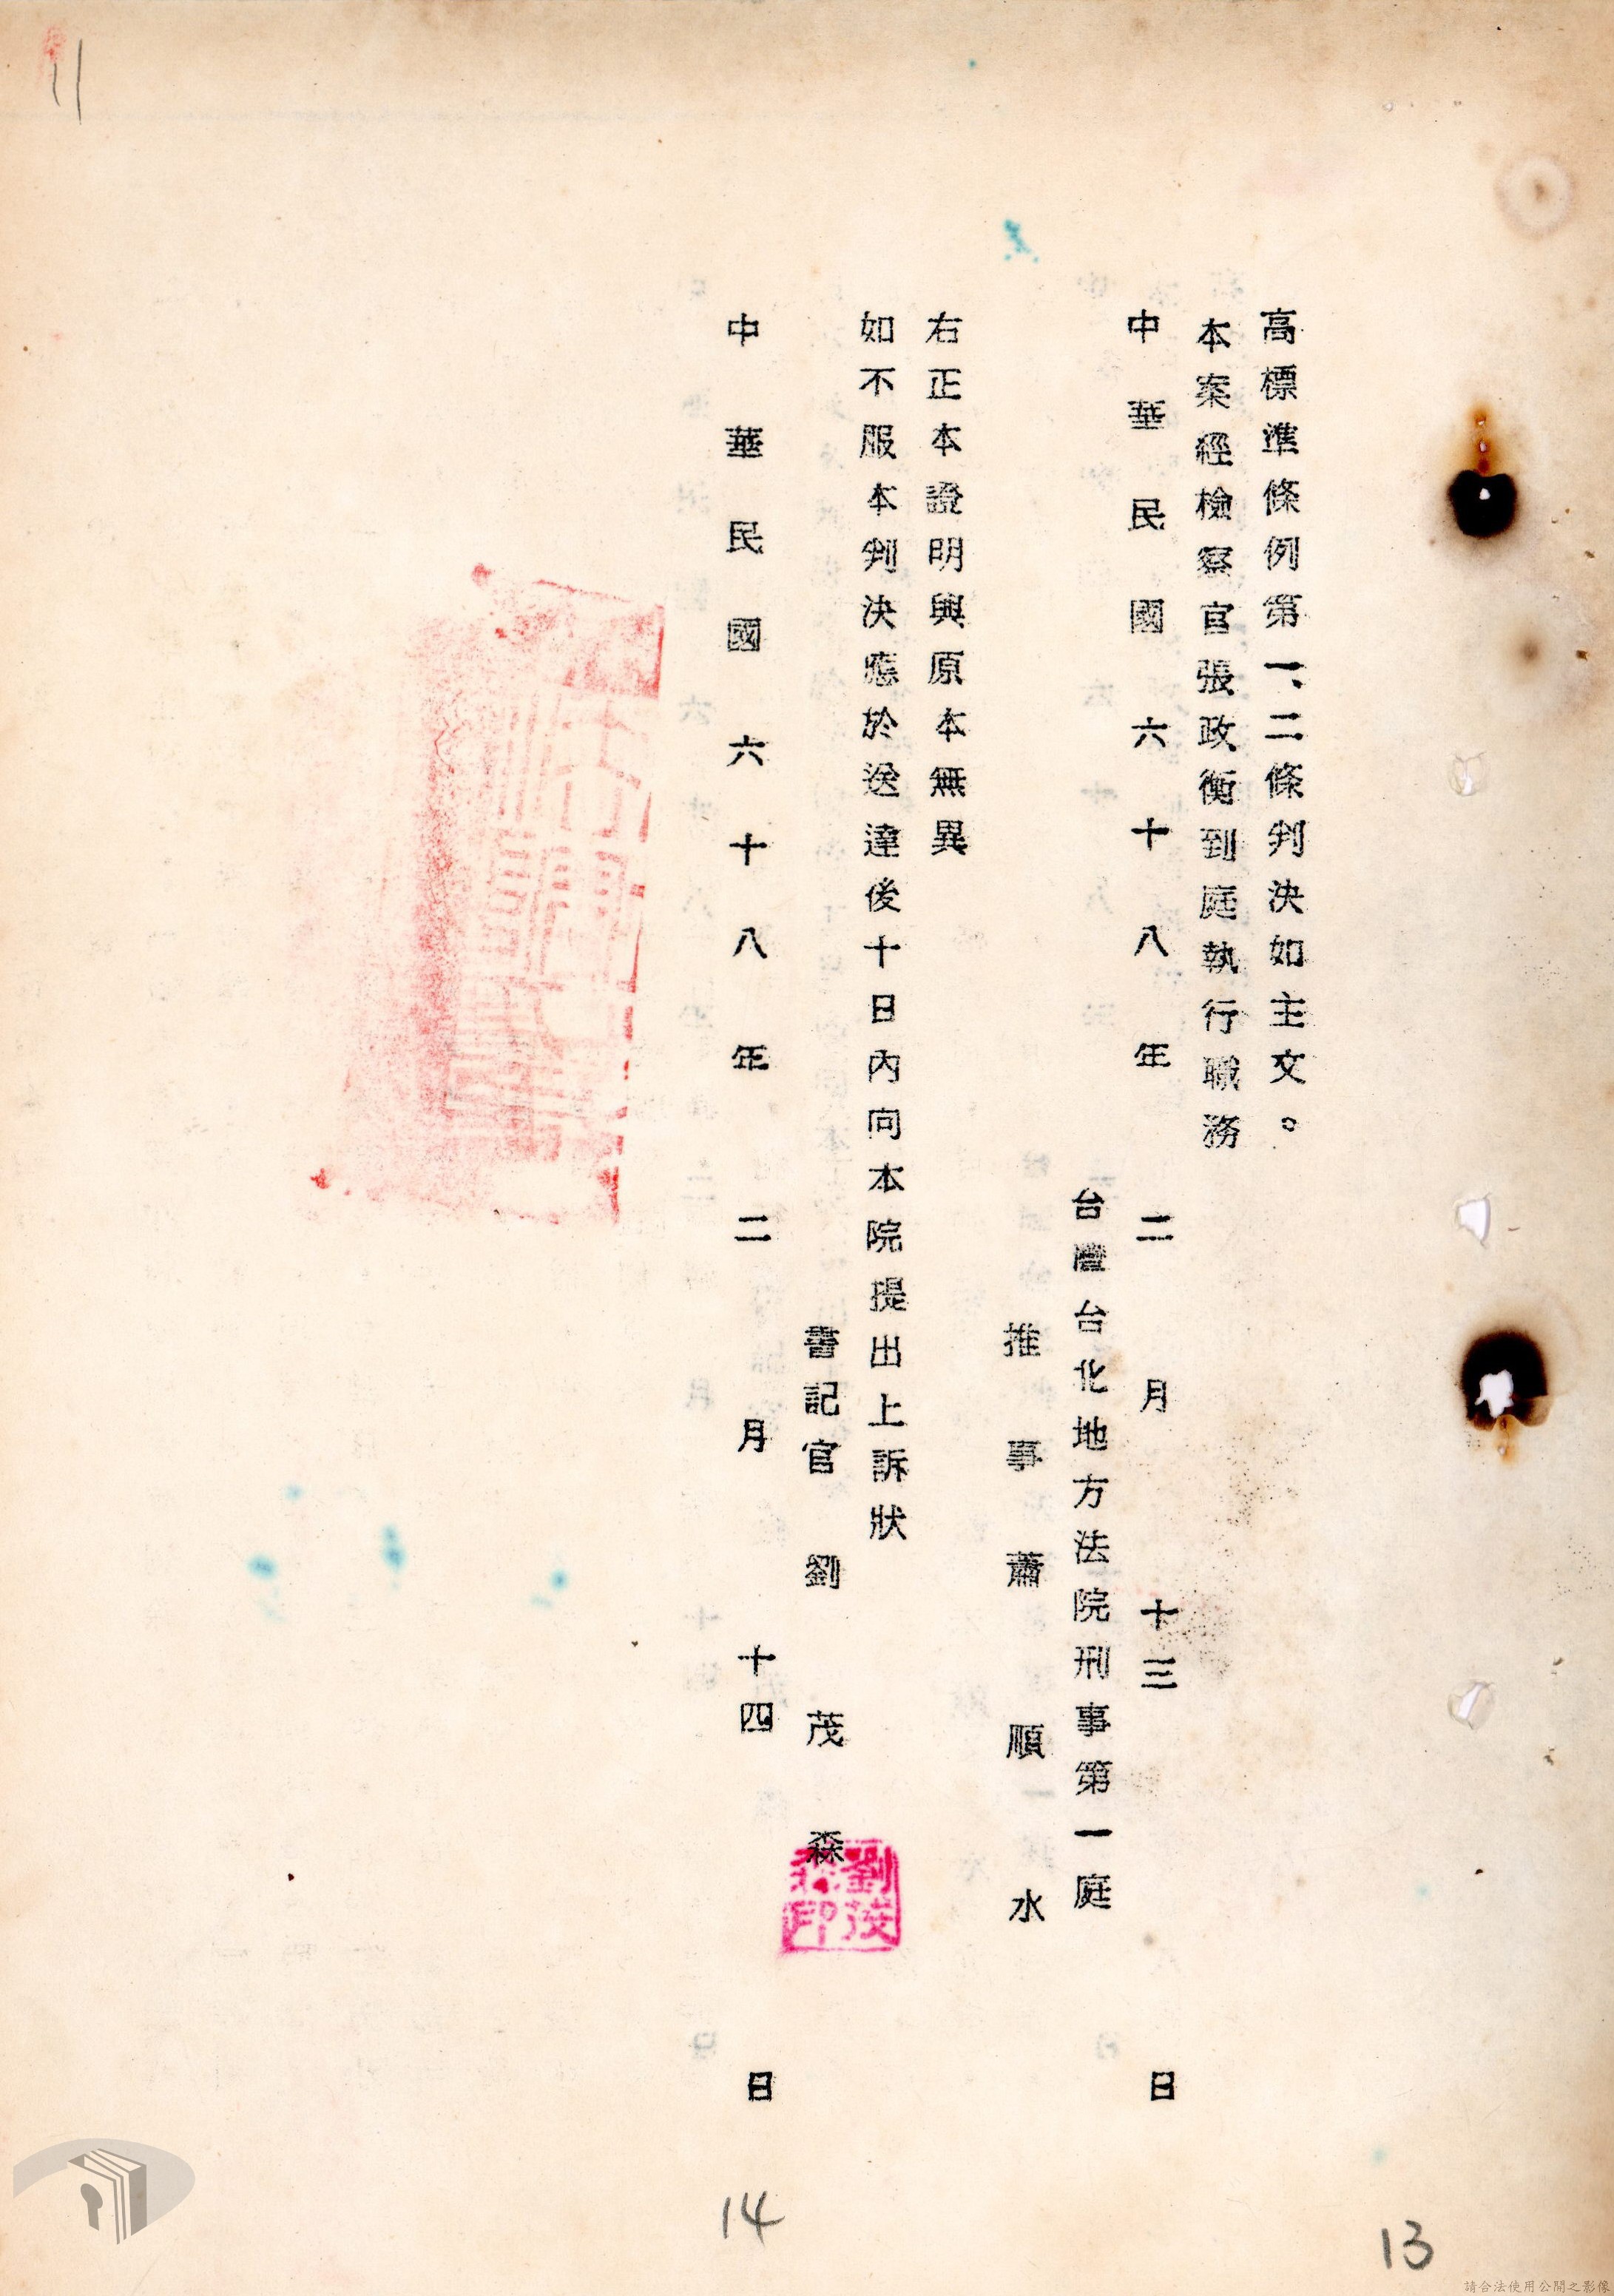 高標準條例第一、二條判決如主文。
本案經檢察官張政衡到庭執行職務
中華民國六十八年二月十三日
台灣台北地方法院刑事第一庭
推事蕭順水
右正本證明與原本無異
如不服本判決應於送達後十日內向本院提出上訴狀
書記官劉茂森
劉茂森印
中華民國六十八年二月十四日
11
14
13
請合法使用公開之影像